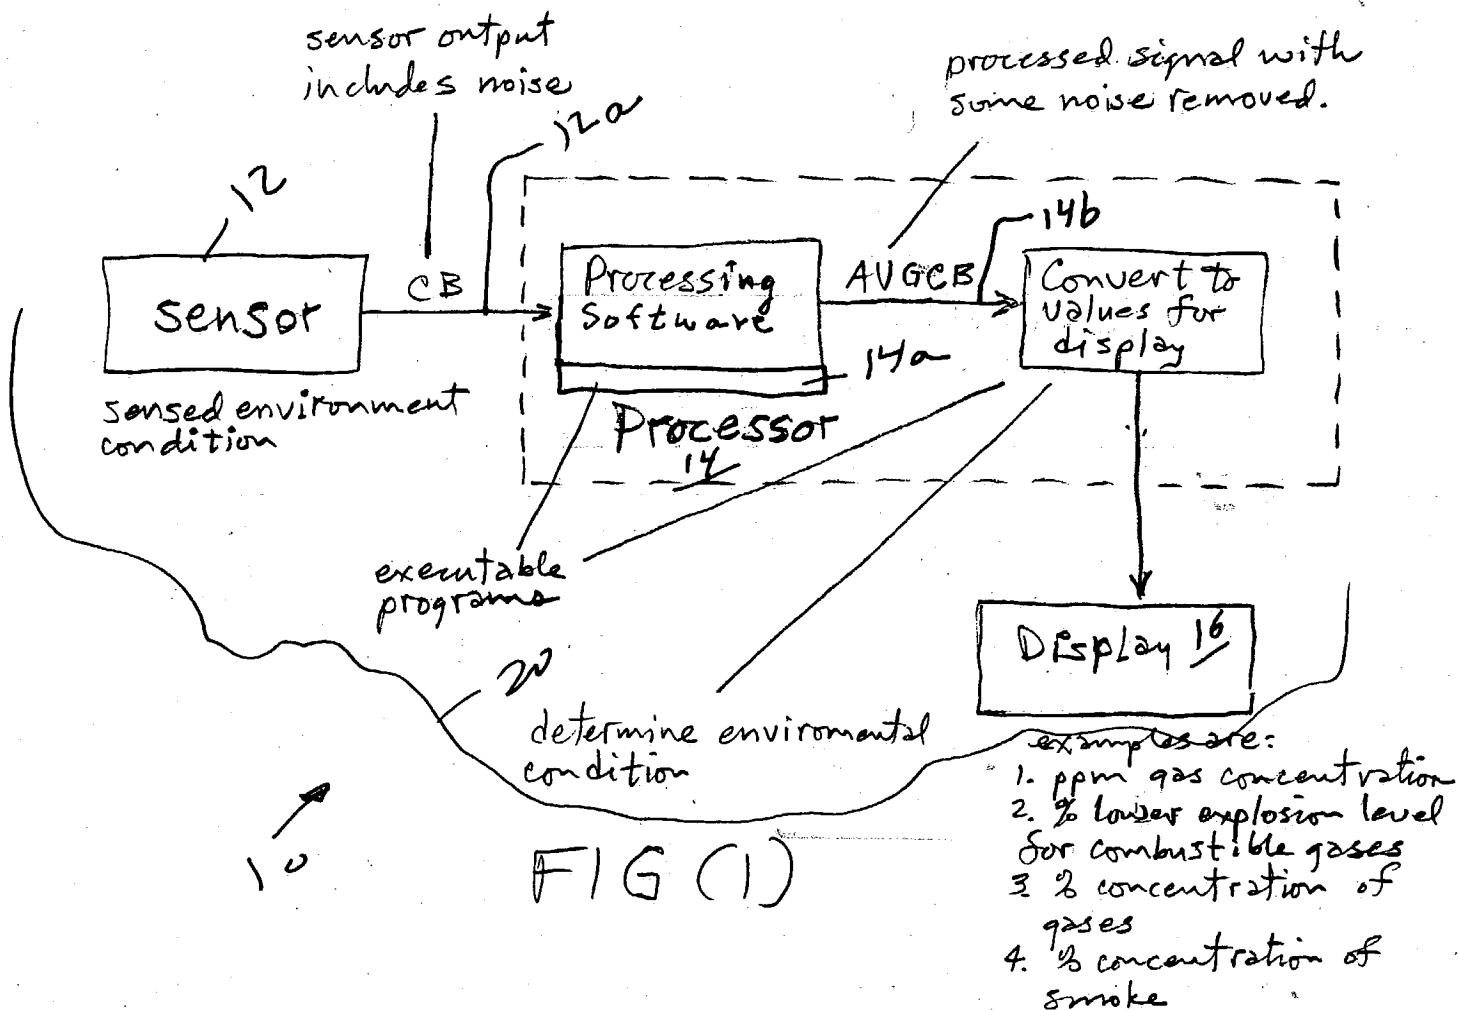 sensor output
includes noise
processed signal with
some noise removed.
12a
12
14b
sensor
CB
Processing
Software
AVGCB
Convert to
values for
display
14a
sensed environment
condition
Processor
14
executable
programs
Display 16
20
determine enviromental
condition
examples are:
1. ppm gas concentration
2. % lower explosion level
for combustible gases
3. % concentration of
gases
4. % concentration of
smoke
10
FIG (1)